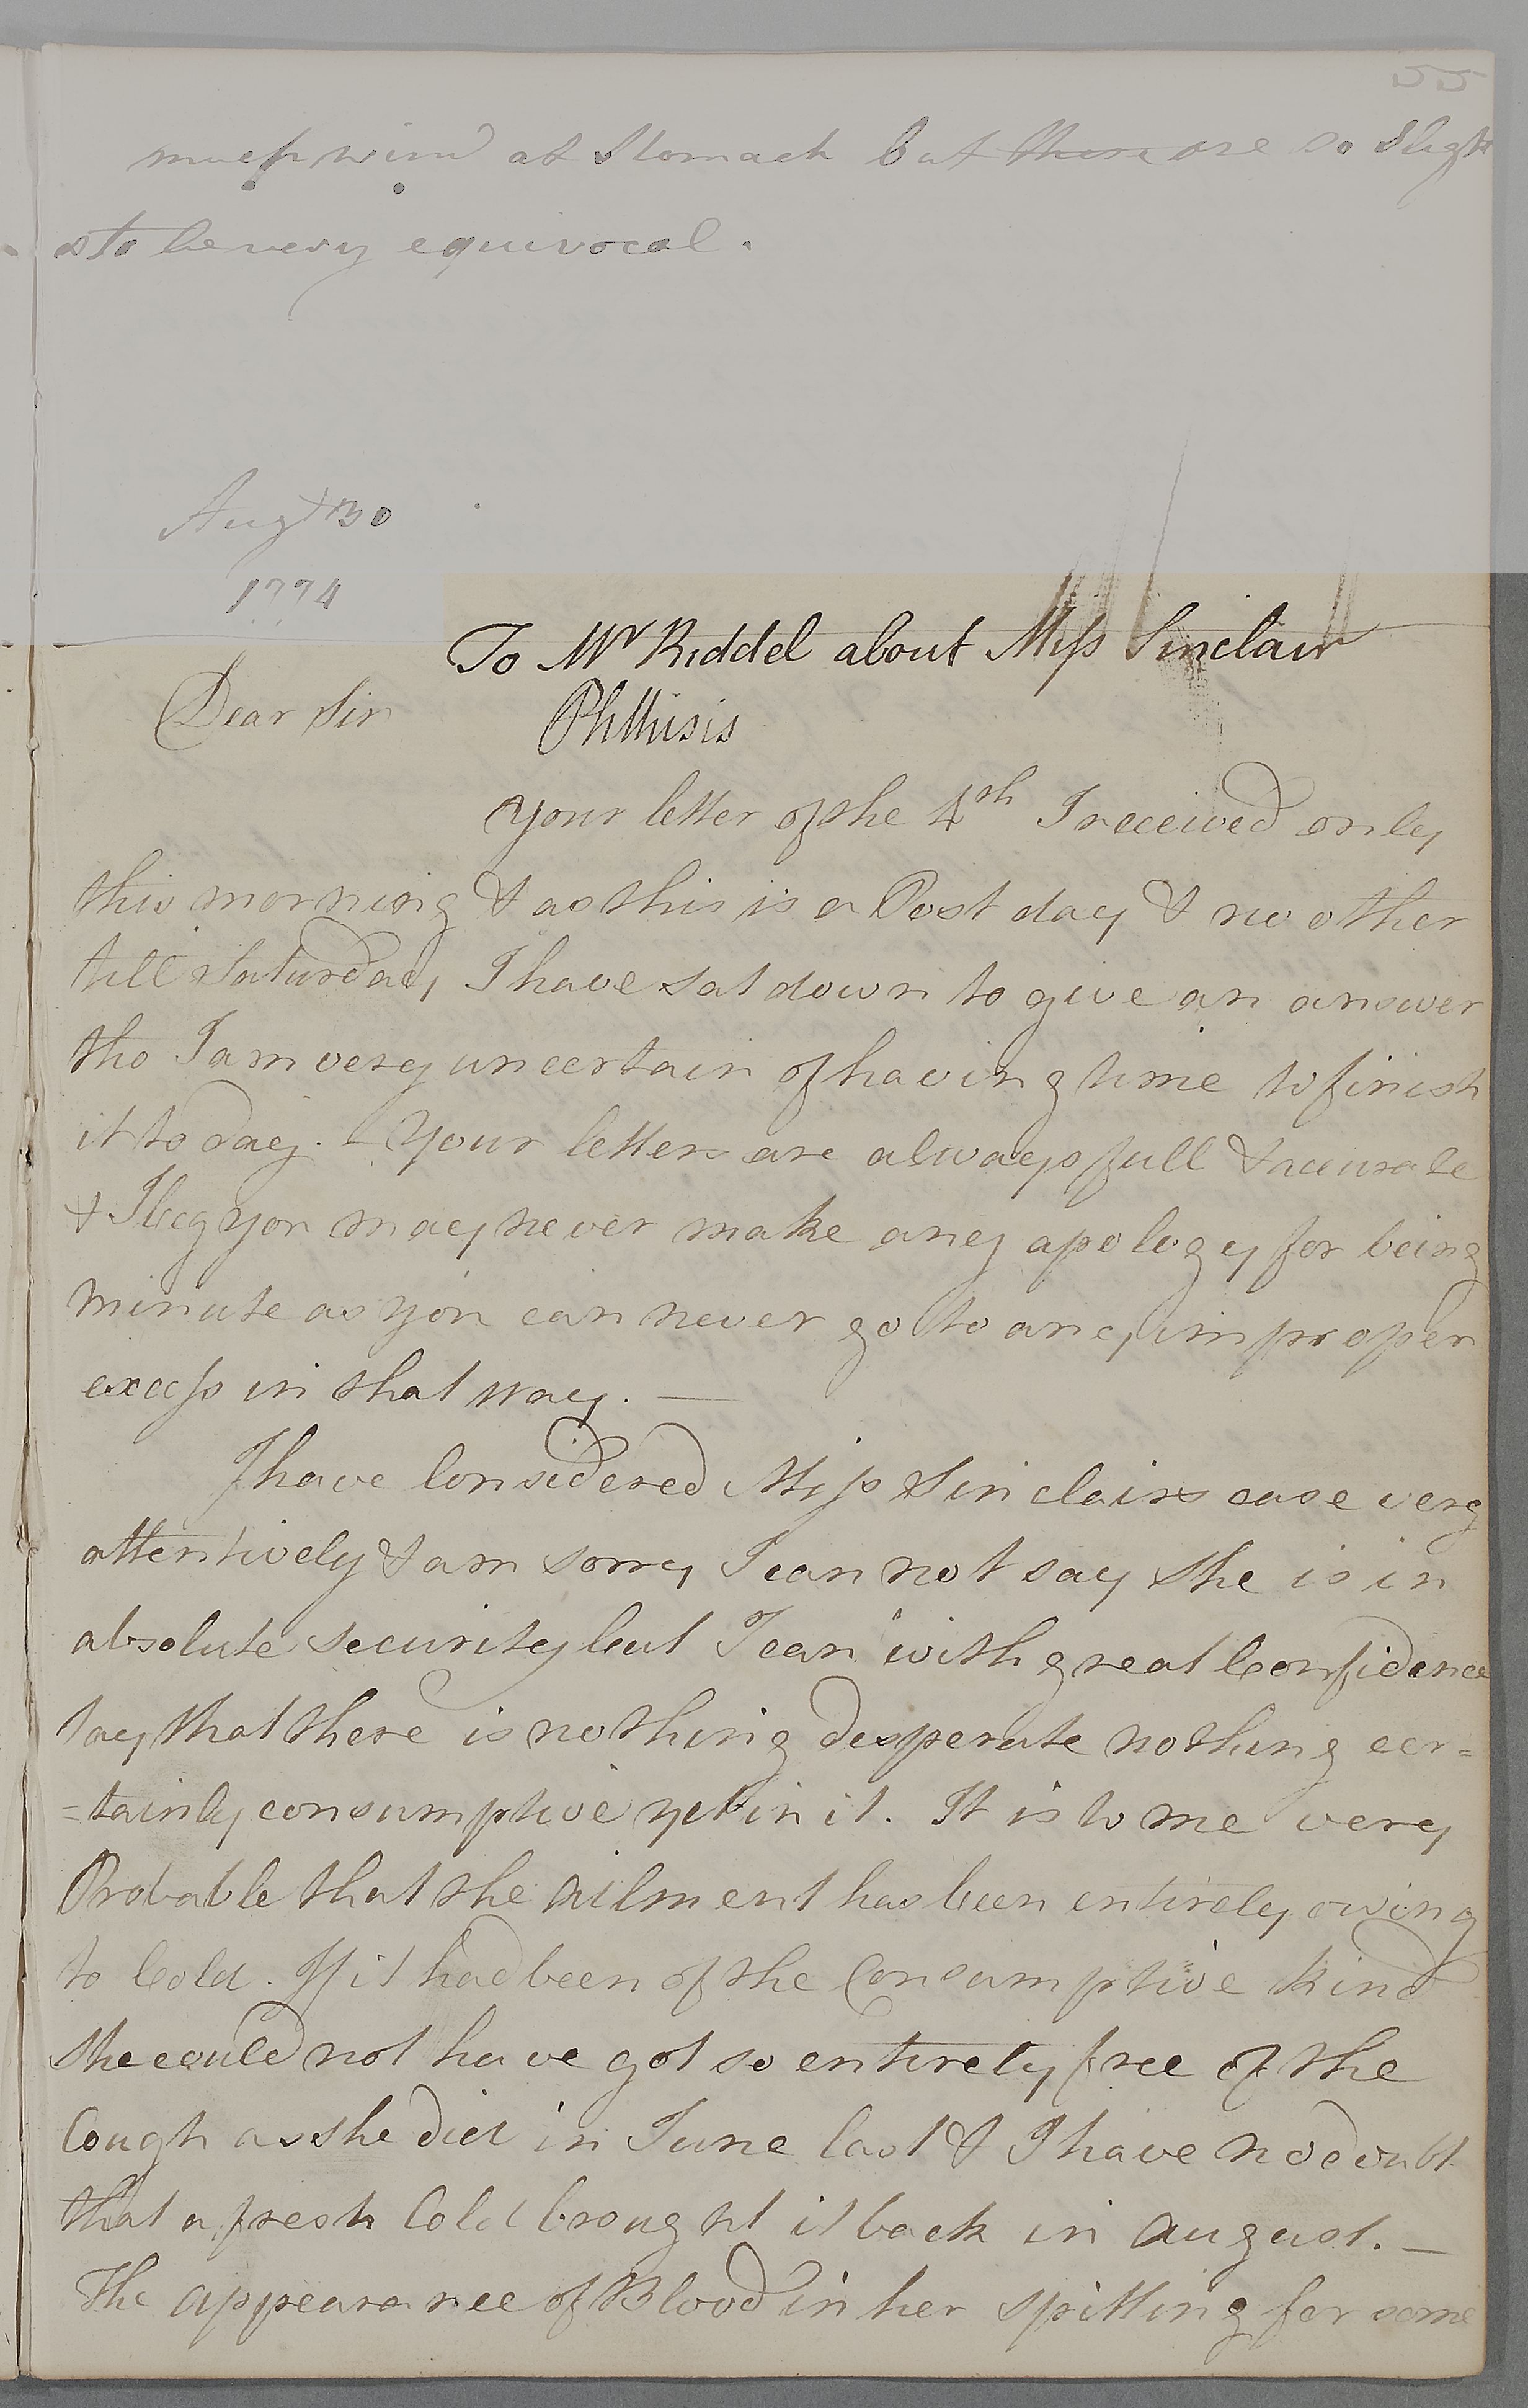 55
much wind at Stomach but there are so Slight
as to be very equivocal.
Augt 30
1774
To Mr Riddel about Miss Sinclair
Phthisis
Dear Sir
Your letter of the 4th I received only
this morning & as this is a Post day & no other
till Saturday I have sat down to give an answer
tho I am very uncertain of having time to finish
it to day. - Your letters are always full & accurate
& I beg you may never make any apology for being
minute as you can never go to any improper
excess in that way. —
I have Considered Miss Sinclairs case very
attentively & am sorry I can not say she is in
absolute security but I can with great Confidence
say that there is nothing desperate nothing cer=
=tainly consumptive yet in it. It is to me very
Probable that the Ailment has been entirely owing
to Cold. If it had been of the Consumptive kind
she could not have got so entirely free of the
Cough as she did in June last & I have no doubt
that a fresh Cold brought it back in August. —
The appearance of Blood in her spitting for some